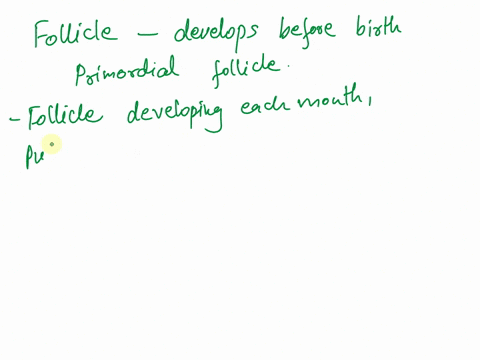 Follicle — develops before birth
Primordial follicle.
- Follicle developing each month,